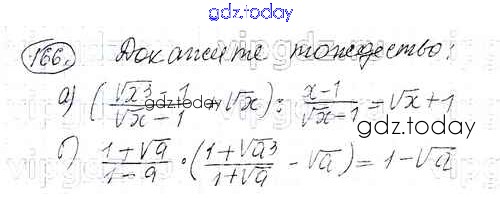 gdz.today
166. Докажите тождество:
а) (√x³ - 1 / √x - 1 + √x) : x-1 / √x-1 = √x + 1
gdz.today
б) 1+√a / 1-a · (1+√a³ / 1+√a - √a) = 1-√a